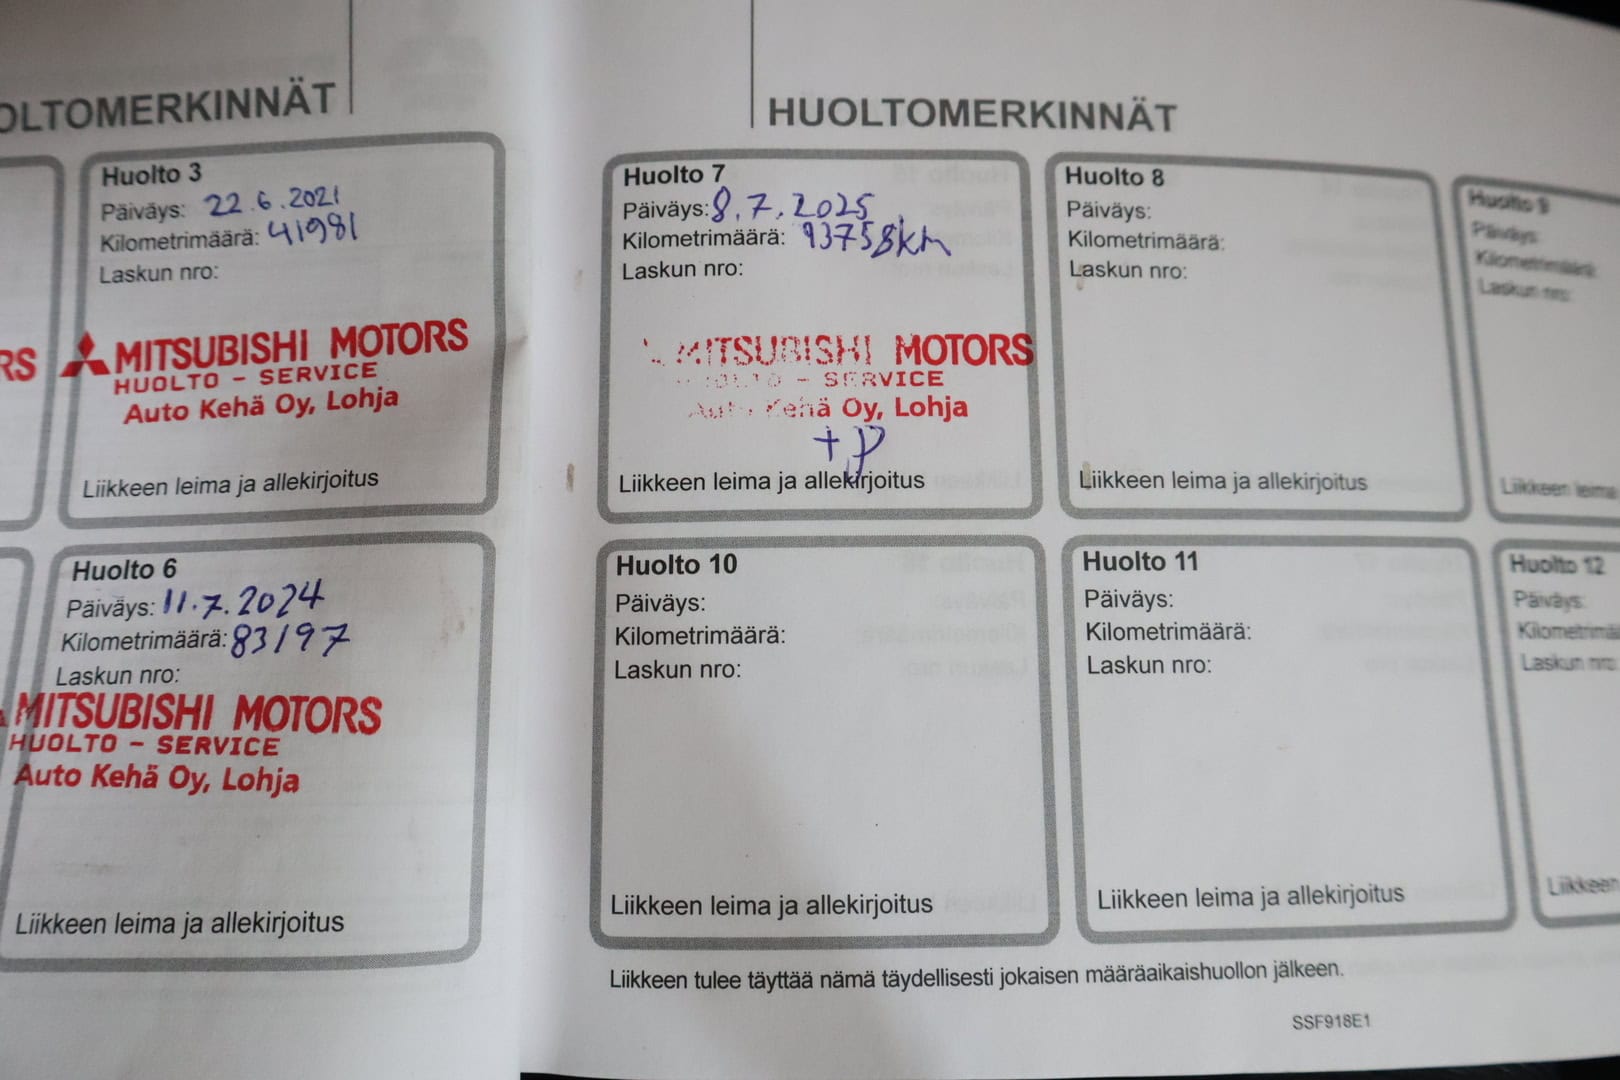 OLTOMERKINNÄT
RS
Huolto 3
Päiväys: 22.6.2021
Kilometrimäärä: 41981
Laskun nro:
MITSUBISHI MOTORS
HUOLTO - SERVICE
Auto Kehä Oy, Lohja
Liikkeen leima ja allekirjoitus
Huolto 6
Päiväys: 11.7.2024
Kilometrimäärä: 83197
Laskun nro:
MITSUBISHI MOTORS
HUOLTO - SERVICE
Auto Kehä Oy, Lohja
Liikkeen leima ja allekirjoitus
HUOLTOMERKINNÄT
Huolto 7
Päiväys: 8.7.2025
Kilometrimäärä: 93758km
Laskun nro:
MITSUBISHI MOTORS
HUOLTO - SERVICE
Auto Kehä Oy, Lohja
Liikkeen leima ja allekirjoitus
Huolto 8
Päiväys:
Kilometrimäärä:
Laskun nro:
Liikkeen leima ja allekirjoitus
Huolto 9
Päiväys:
Kilometrimäärä:
Laskun nro:
Liikkeen leima
Huolto 10
Päiväys:
Kilometrimäärä:
Laskun nro:
Liikkeen leima ja allekirjoitus
Huolto 11
Päiväys:
Kilometrimäärä:
Laskun nro:
Liikkeen leima ja allekirjoitus
Huolto 12
Päiväys:
Kilometrimäärä
Laskun nro:
Liikkeen
Liikkeen tulee täyttää nämä täydellisesti jokaisen määräaikaishuollon jälkeen.
SSF918E1